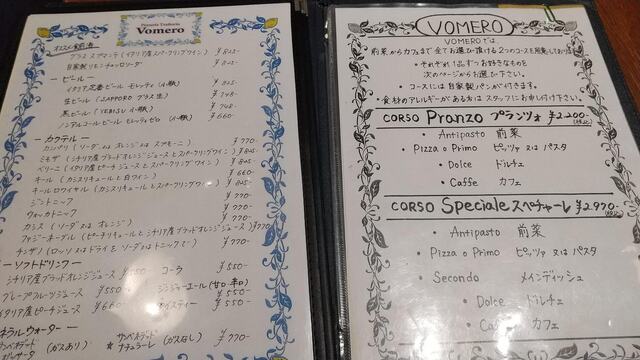 Pizzeria Trattoria
Vomero
オススメ食前酒
グラス スプマンテ(イタリア産スパークリングワイン) ¥825-
自家製リモンチェッロソーダ ¥825-
ービールー
イタリア定番ビール モレッティ(小瓶) ¥825-
生ビール(SAPPORO グラス生) ¥748-
黒ビール(YEBISU 小瓶) ¥748-
ノンアルコールビール モレッティゼロ(小瓶) ¥660-
ーカクテルー
カンパリ(ソーダ又はオレンジ又はスプモーニ) ¥770-
ミモザ(シチリア産ブラッドオレンジジュースとスパークリングワイン) ¥825-
ベリーニ(イタリア産ピーチジュースとスパークリングワイン) ¥825-
キール(カシスリキュールと白ワイン) ¥660-
キールロワイヤル(カシスリキュールとスパークリングワイン) ¥825-
ジントニック ¥770-
ウォッカトニック ¥770-
カシス(ソーダ又はオレンジ) ¥770-
ファジーネーブル(ピーチリキュールとシチリア産ブラッドオレンジジュース) ¥770-
チンザノ(ロッソ又はドライをソーダ又はトニックで) ¥770-
ーソフトドリンクー
シチリア産ブラッドオレンジジュース ¥550- コーラ ¥550-
グレープフルーツジュース ¥550- ジンジャーエール(甘口・辛口) ¥550-
イタリア産ピーチジュース ¥660- アイスティー ¥550-
ミネラルウォーター
(ガスあり) サンベネデット ナチュラーレ(ガスなし) ¥770-
VOMERO
VOMEROでは
前菜からカフェまで全てお選び頂ける2つのコースを用意しております
・それぞれ1品ずつお好きなものを
次のページからお選び下さい。
・コースには自家製パンが付きます。
・食材のアレルギーがある方はスタッフにお申し付け下さい。
CORSO Pranzo プランツォ ¥2,200-(税込)
・Antipasto 前菜
・Pizza o Primo ピッツァ 又は パスタ
・Dolce ドルチェ
・Caffe カフェ
CORSO Speciale スペチャーレ ¥2,970-(税込)
・Antipasto 前菜
・Pizza o Primo ピッツァ 又は パスタ
・Secondo メインディッシュ
・Dolce ドルチェ
・Caffe カフェ